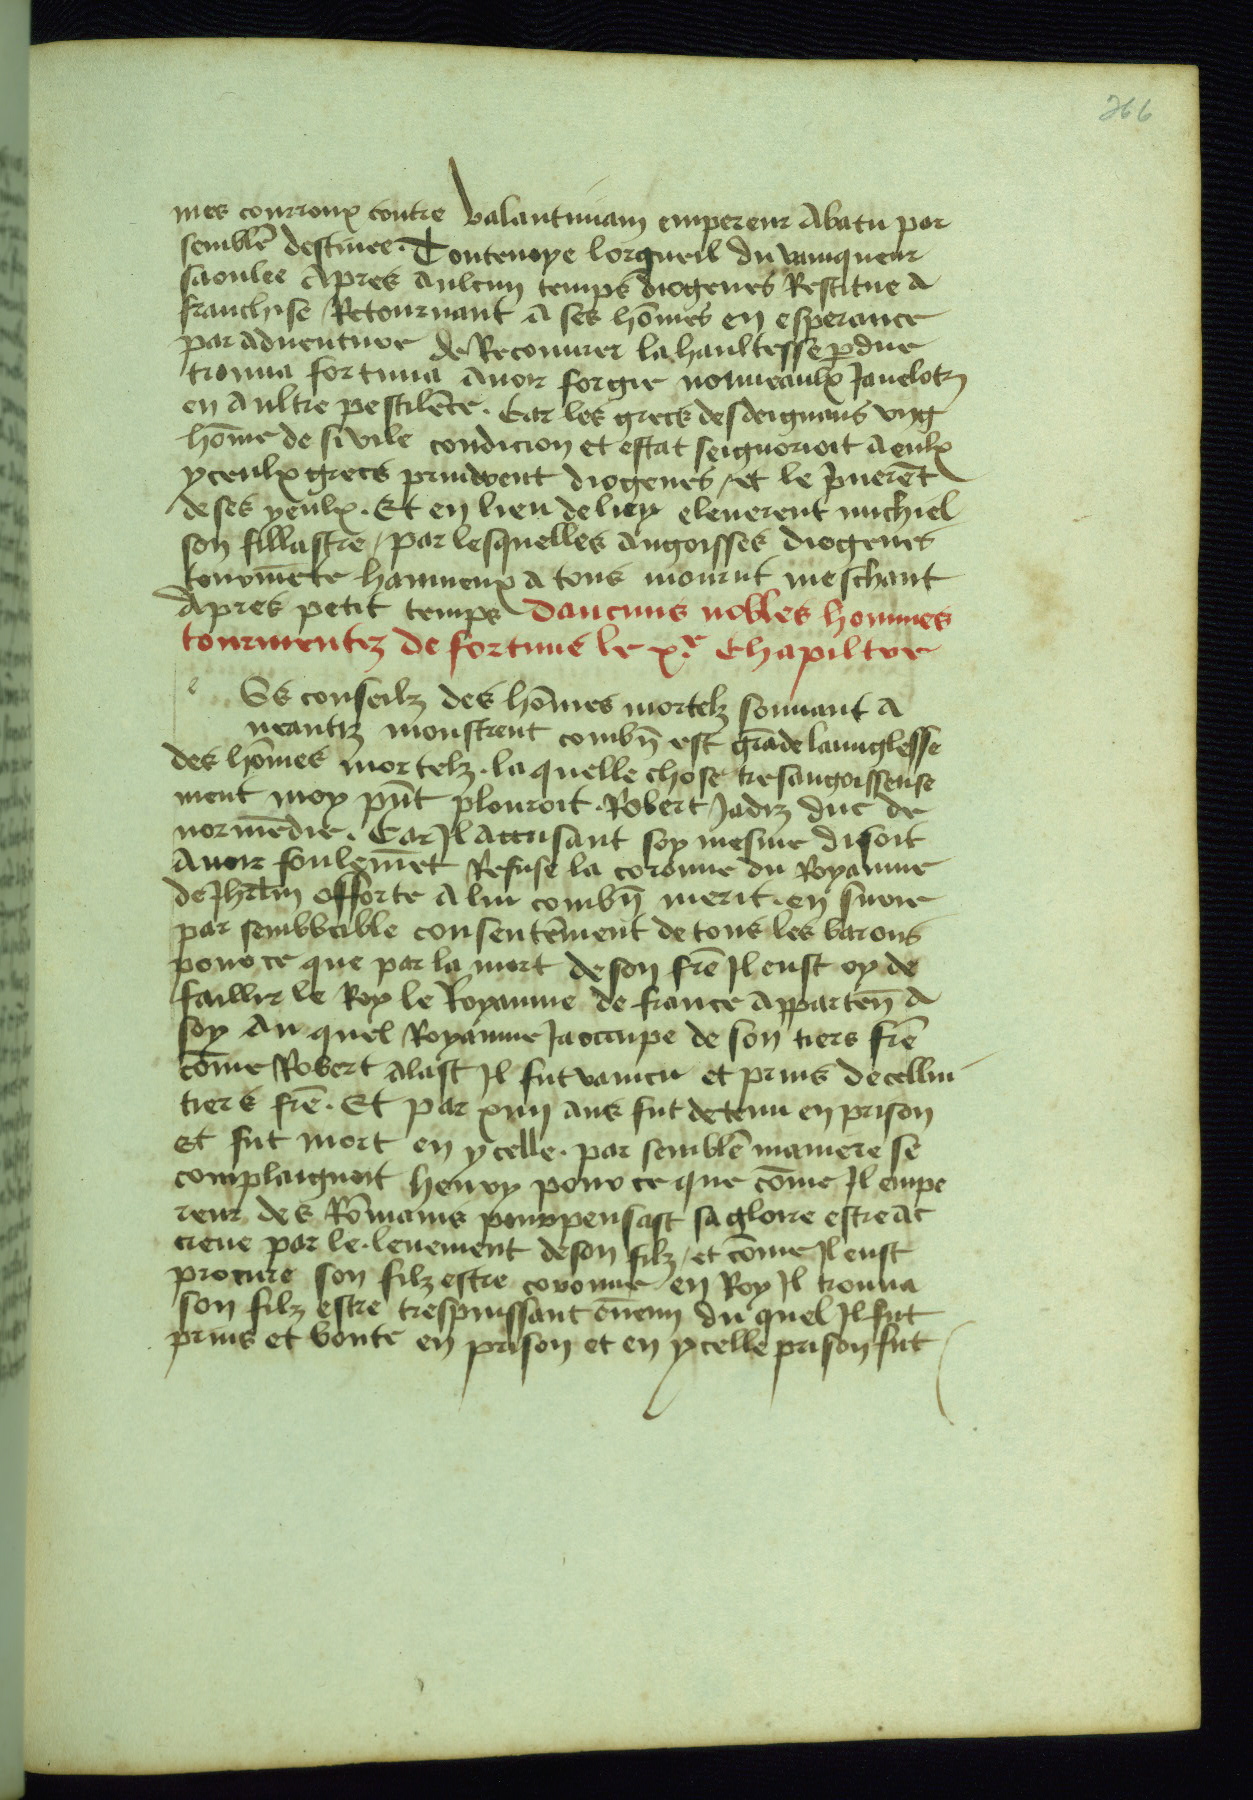 266
mes courroux contre valantiniam empereur Abatu par
semblē destinee. Toutenoye lorgueil du vainqueur
saoulee Apres Aulcun temps diogenes Restitue A
franchise Retournant A ses hōmes en esperance
par aduenture de Recouurer la haultesse ꝑdue
trouua fortuna Auoir forgie nouueaulx Jauelotz
en Aultre pestilēce. Car les grecs desdeignans vng
hōme de si vile condicion et estat seignorioit A eulx
yceulx grecs prindrent diogenes / et le p̄uerēt
de ses yeulx. Et en lieu de luy eleuerent michiel
son fillastre / par lesquelles Angoisses diogenes
tourmēte haineux A tous mourut meschant
Apres petit temps daucuns nobles hommes
tourmentez de fortune le xe Chapiltre
e Es conseilz des hōmes mortelz souuant A
neantiz monstrent combn̄ est grāde lauuglesse
des hōmes mortelz. la quelle chose tresangoisseuse
ment moy pn̄t plouroit. Robert Jadiz duc de
normēdie. Car Il Accusant soy mesme disoit
Auoir foulemēt Refuse la coronne du Royaume
de Jhrlm offorte A lui combn̄ merit. en suore
par semblable consentēment de tous les barons
pource que par la mort de son frē Il eust oy de
faillir le Roy le Royaume de france Apparten̄ A
soy Au quel Royaume Ja occupe de son tiers frē
cōme Robert Alast Il fut vaincu et prins de cellui
tiers frē. Et par xiiij ans fut detenu en prison
Et fut mort en ycelle. par semblē maniere se
complaignoit henry pour ce que cōme Il empe
reur des Rōmains pourpensast sa gloire estre ac
creue par le.leuement de son filz / et cōme Il eust
procure son filz estre coronne en Roy Il trouua
son filz estre trespuissant ēnemi du quel Il fut
prins et boute en prison et en ycelle prison fut